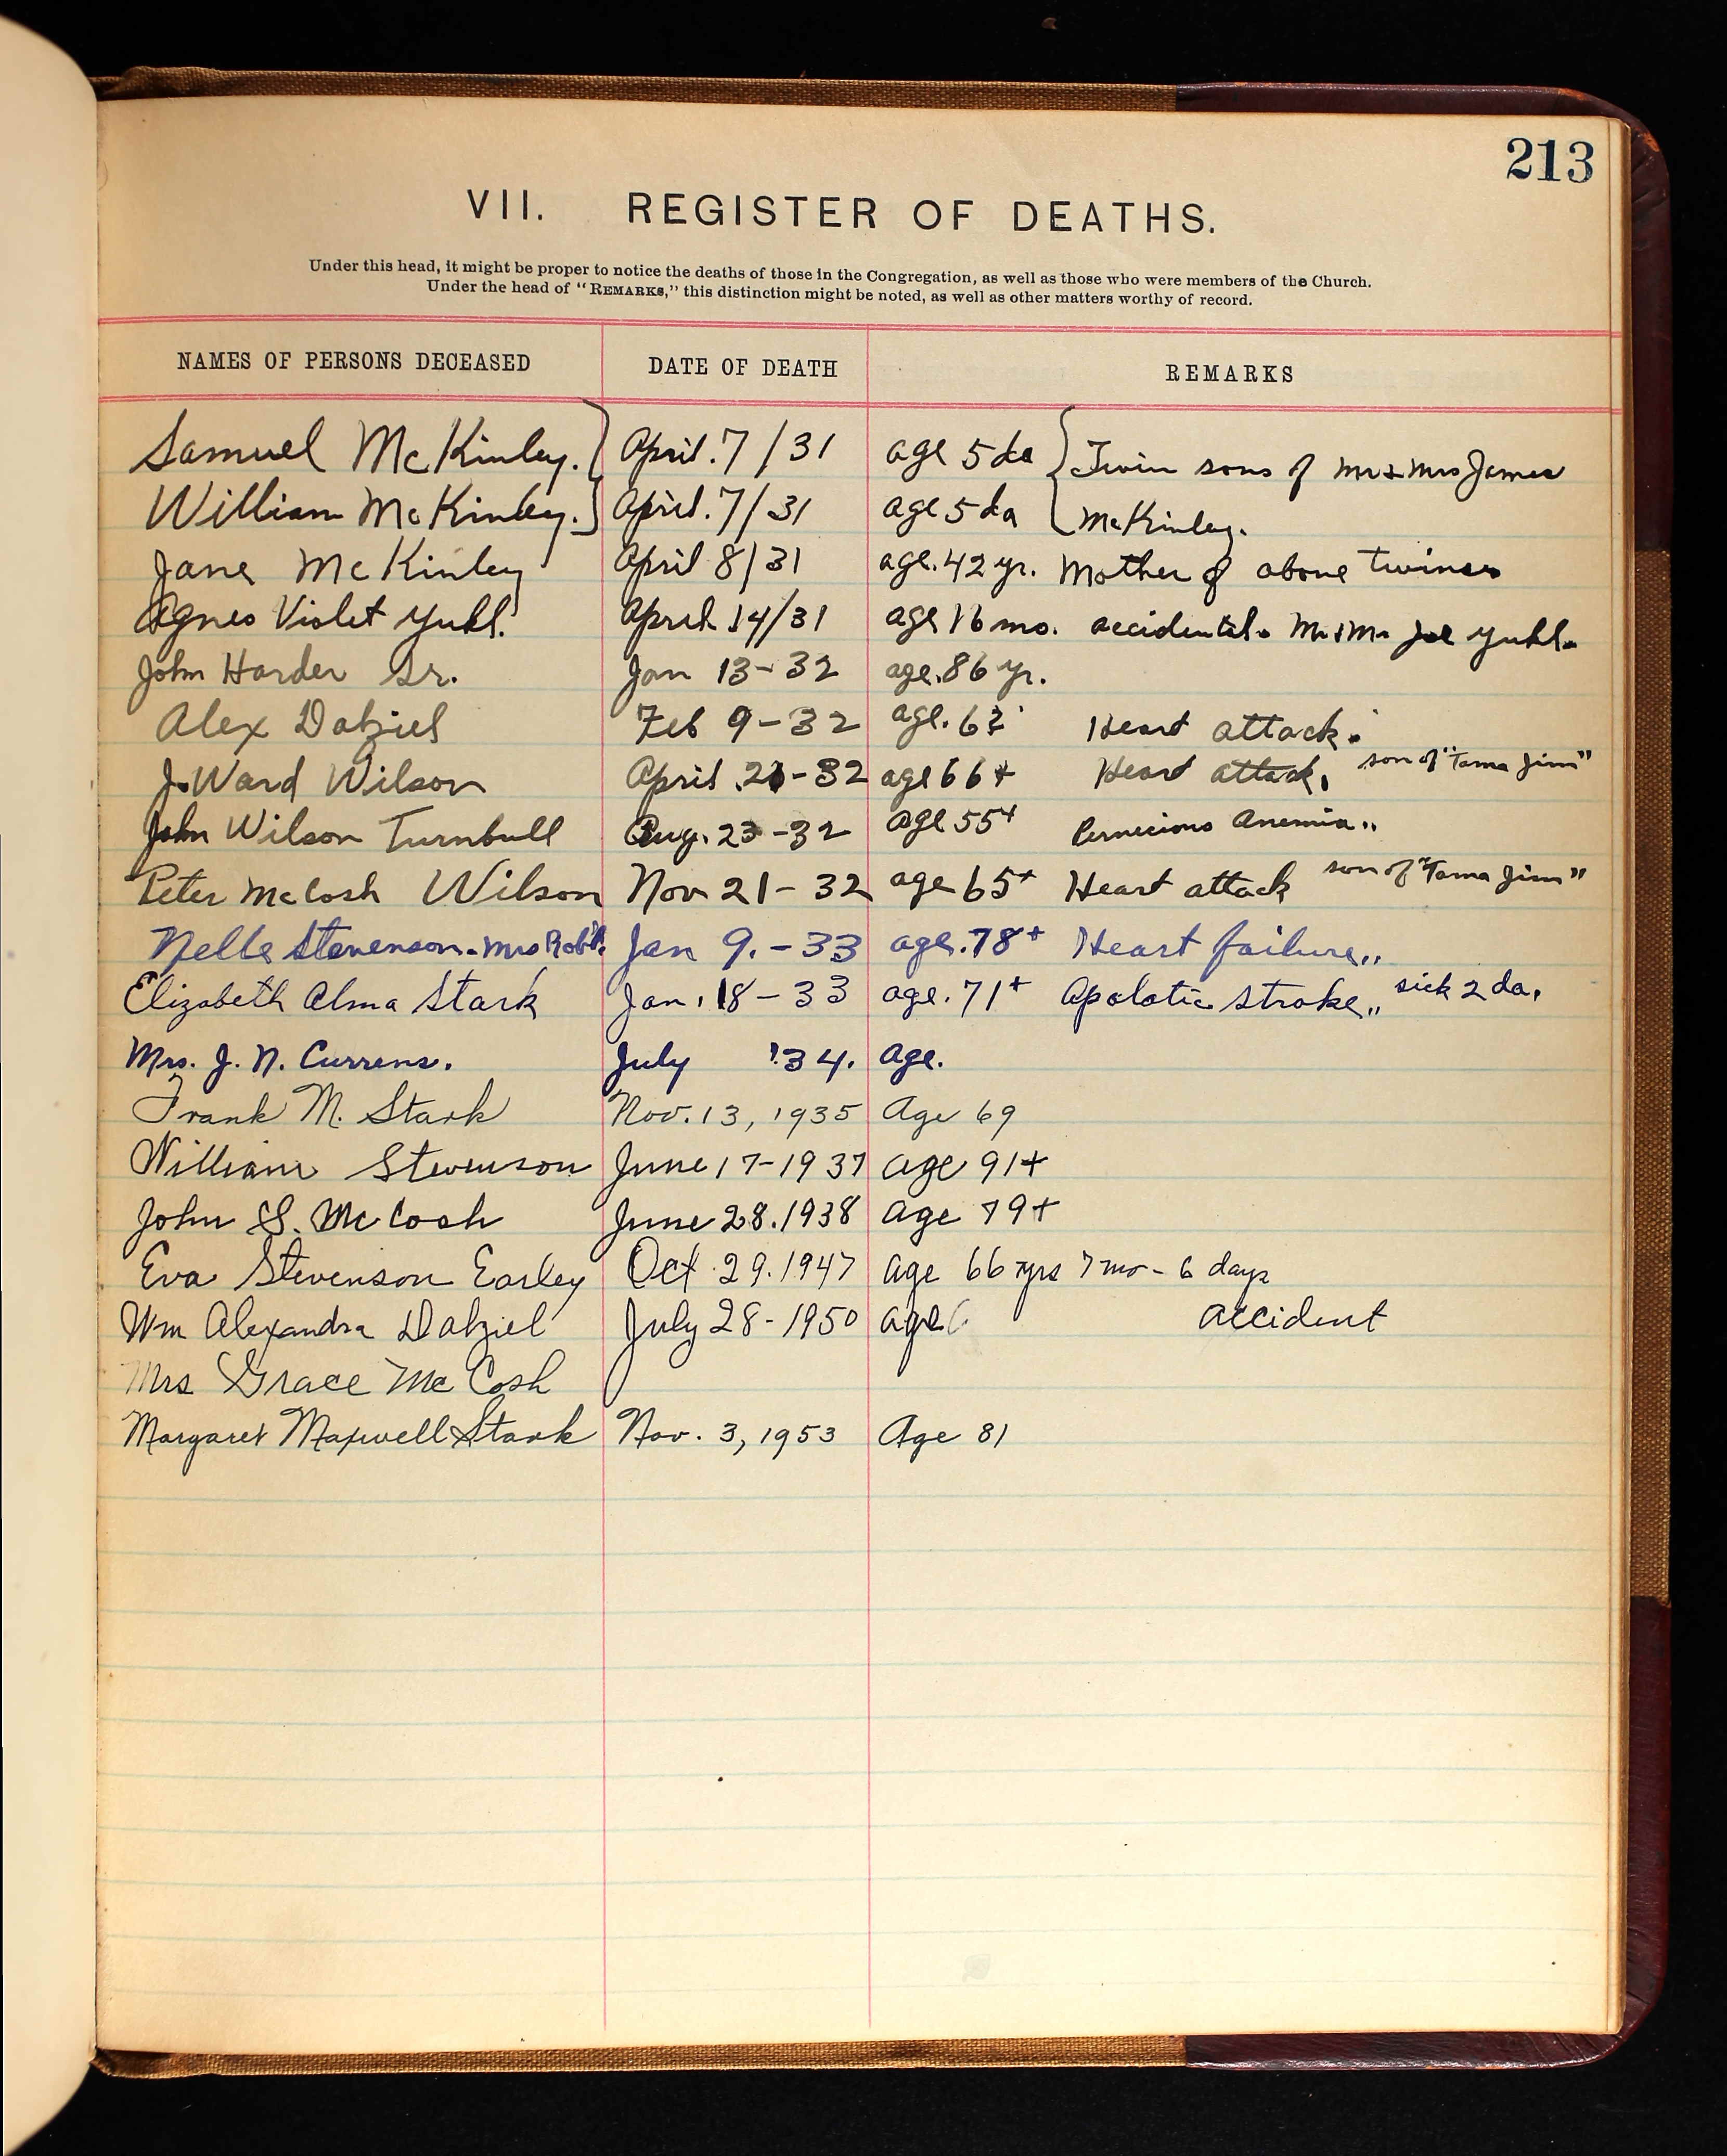 213
VII. REGISTER OF DEATHS.
Under this head, it might be proper to notice the deaths of those in the Congregation, as well as those who were members of the Church.
Under the head of "REMARKS," this distinction might be noted, as well as other matters worthy of record.
NAMES OF PERSONS DECEASED DATE OF DEATH REMARKS
Samuel McKinley. April. 7/31 age 5 da Twin sons of Mr & Mrs James
William McKinley. April. 7/31 age 5 da McKinley.
Jane McKinley April 8/31 age. 42 yr. Mother of above twines
Agnes Violet Yuhl. April 14/31 age 16 mo. accidental. Mr & Mr Joe Yuhl.
John Harder Sr. Jan 13-32 age. 86 yr.
Alex Dalziel Feb 9-32 age. 62 Heart attack.
J. Ward Wilson April 21-32 age 66+ Heart attack, son of "Tama Jim"
John Wilson Turnbull Aug. 23-32 age 55+ Pernecious Anemia..
Peter McCosh Wilson Nov 21-32 age 65+ Heart attack son of "Tama Jim"
Nelle Stevenson. Mrs Rob't. Jan 9.-33 age. 78+ Heart failure..
Elizabeth Alma Stark Jan. 18-33 age. 71+ Apolotic stroke.. sick 2 da.
Mrs. J. N. Currens. July '34. age.
Frank M. Stark Nov. 13, 1935 Age 69
William Stevenson June 17-1937 age 91+
John S. McCosh June 28. 1938 age 79+
Eva Stevenson Earley Oct 29. 1947 age 66 yrs 7 mo - 6 days
Wm Alexandra Dalziel July 28-1950 age accident
Mrs Grace McCosh
Margaret Maxwell Stark Nov. 3, 1953 Age 81